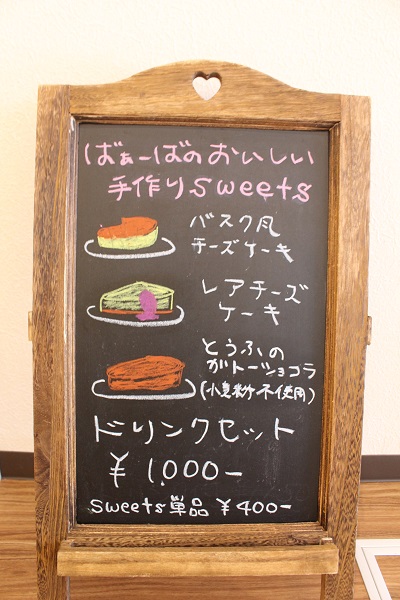 ばぁーばのおいしい
手作りsweets
バスク風
チーズケーキ
レアチーズ
ケーキ
とうふの
ガトーショコラ
(小麦粉不使用)
ドリンクセット
¥1,000-
sweets単品 ¥400-